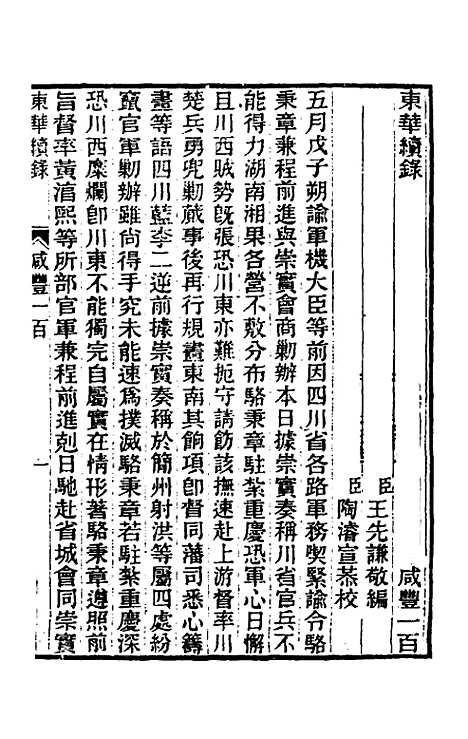 東華續錄 咸豐一百
臣王先謙敬編
臣陶濬宣恭校
五月戊子朔諭軍機大臣等前因四川省各路軍務喫緊諭令駱
秉章兼程前進與崇實會商勦辦本日據崇實奏稱川省官兵不
能得力湖南湘果各營不敷分布駱秉章駐紮重慶恐軍心日懈
且川西賊勢旣張恐川東亦難扼守請飭該撫速赴上游督率川
楚兵勇兜勦蕆事後再行規畫東南其餉項卽督同藩司悉心籌
畫等語四川藍李二逆前據崇實奏稱於簡州射洪等屬四處紛
竄官軍勦辦雖尙得手究未能速爲撲滅駱秉章若駐紮重慶深
恐川西糜爛卽川東不能獨完自屬實在情形著駱秉章遵照前
旨督率黃淯熙等所部官軍兼程前進剋日馳赴省城會同崇實
東華續錄 咸豐一百 一